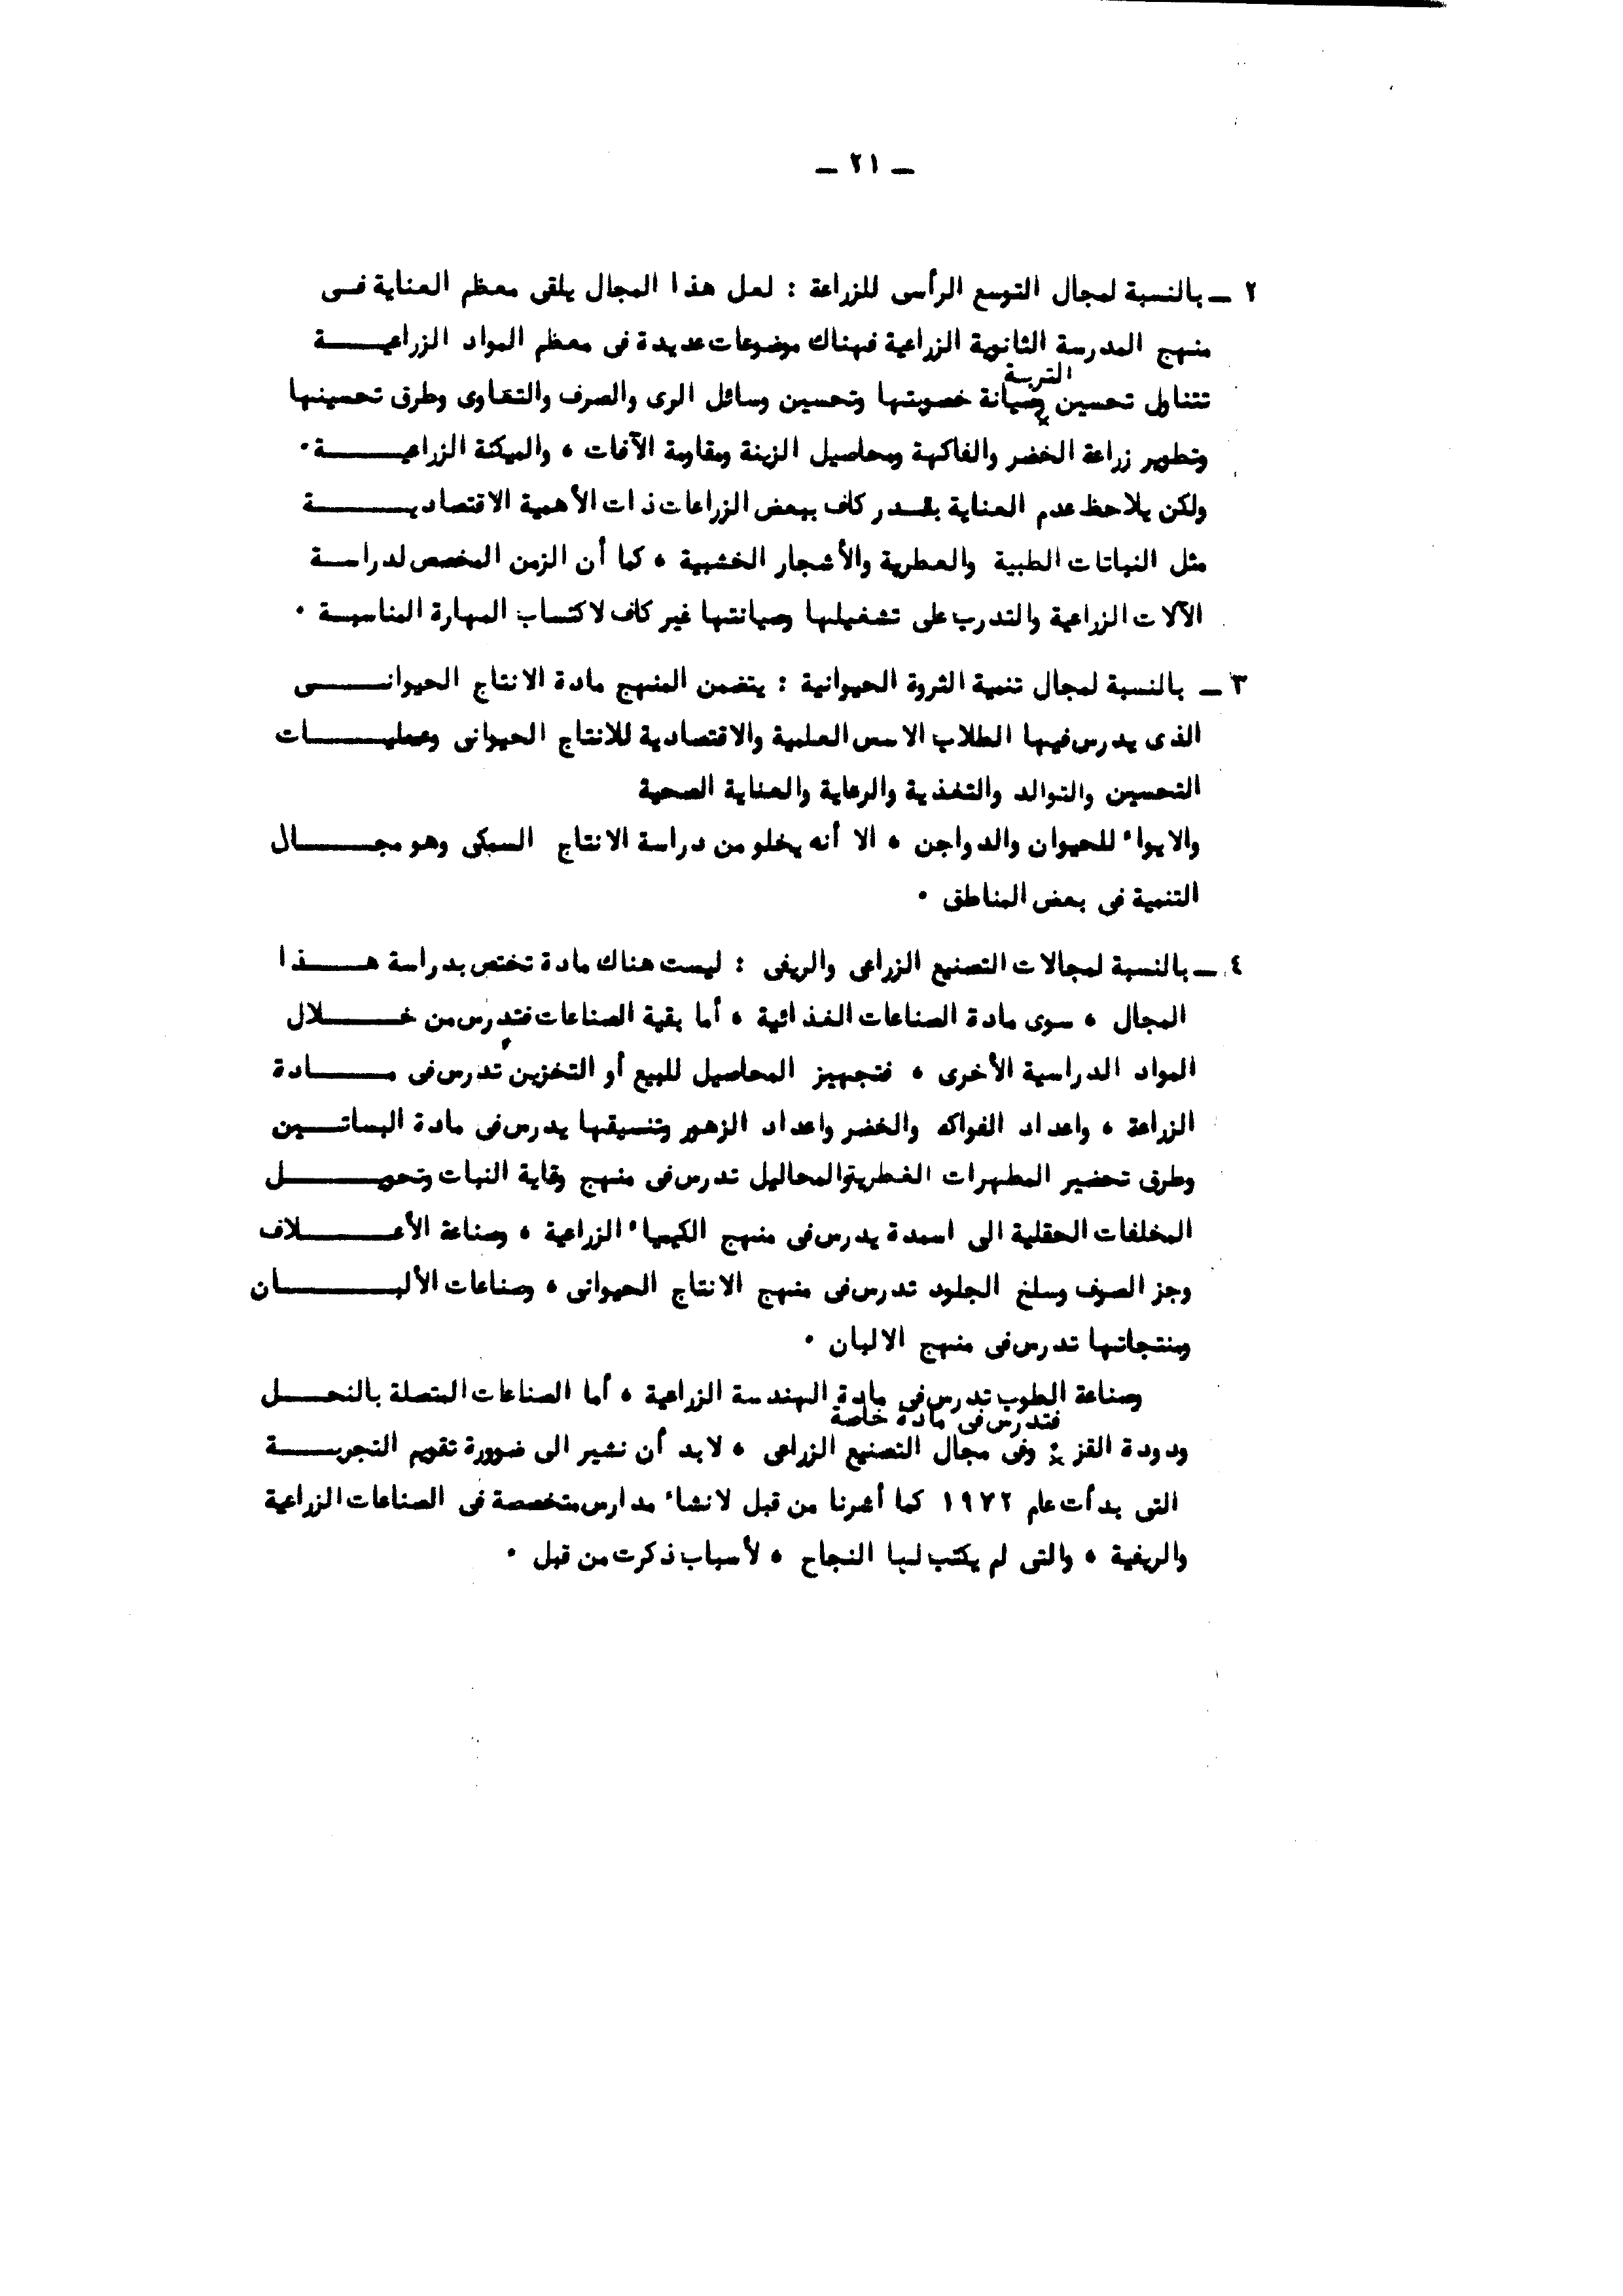 ـ ٢١ ـ
٢ ـ بالنسبة لمجال التوسع الرأسى للزراعة : لعل هذا المجال يلقى معظم العناية فى
منهج المدرسة الثانوية الزراعية فهناك موضوعات عديدة فى معظم المواد الزراعية
التربة
تتناول تحسين وصيانة خصوبتها وتحسين وسائل الرى والصرف والتقاوى وطرق تحسينها
وتطوير زراعة الخضر والفاكهة ومحاصيل الزينة ومقاومة الآفات ، والميكنة الزراعية .
ولكن يلاحظ عدم العناية بقدر كاف ببعض الزراعات ذات الأهمية الاقتصادية
مثل النباتات الطبية والعطرية والأشجار الخشبية ، كما أن الزمن المخصص لدراسة
الآلات الزراعية والتدرب على تشغيلها وصيانتها غير كاف لاكتساب المهارة المناسبة .
٣ ـ بالنسبة لمجال تنمية الثروة الحيوانية : يتضمن المنهج مادة الانتاج الحيوانى
الذى يدرس فيها الطلاب الاسس العلمية والاقتصادية للانتاج الحيوانى وعمليات
التحسين والتوالد والتغذية والرعاية والعناية الصحية
والايواء للحيوان والدواجن ، الا أنه يخلو من دراسة الانتاج السمكى وهو مجال
التنمية فى بعض المناطق .
٤ ـ بالنسبة لمجالات التصنيع الزراعى والريفى : ليست هناك مادة تختص بدراسة هذا
المجال ، سوى مادة الصناعات الغذائية ، أما بقية الصناعات فتدرس من خلال
المواد الدراسية الأخرى ، فتجهيز المحاصيل للبيع أو التخزين تدرس فى مادة
الزراعة ، واعداد الفواكه والخضر واعداد الزهور وتنسيقها يدرس فى مادة البساتين
وطرق تحضير المطهرات الفطرية والمحاليل تدرس فى منهج وقاية النبات وتحويل
المخلفات الحقلية الى اسمدة يدرس فى منهج الكيمياء الزراعية ، وصناعة الأعلاف
وجز الصوف وسلخ الجلود تدرس فى منهج الانتاج الحيوانى ، وصناعات الألبان
ومنتجاتها تدرس فى منهج الالبان .
وصناعة الطوب تدرس فى مادة الهندسة الزراعية ، أما الصناعات المتصلة بالنحل
فتدرس فى مادة خاصة
ودودة القز وفى مجال التصنيع الزراعى ، لابد أن نشير الى ضرورة تقويم التجربة
التى بدأت عام ١٩٧٢ كما أشرنا من قبل لانشاء مدارس متخصصة فى الصناعات الزراعية
والريفية ، والتى لم يكتب لها النجاح ، لأسباب ذكرت من قبل .